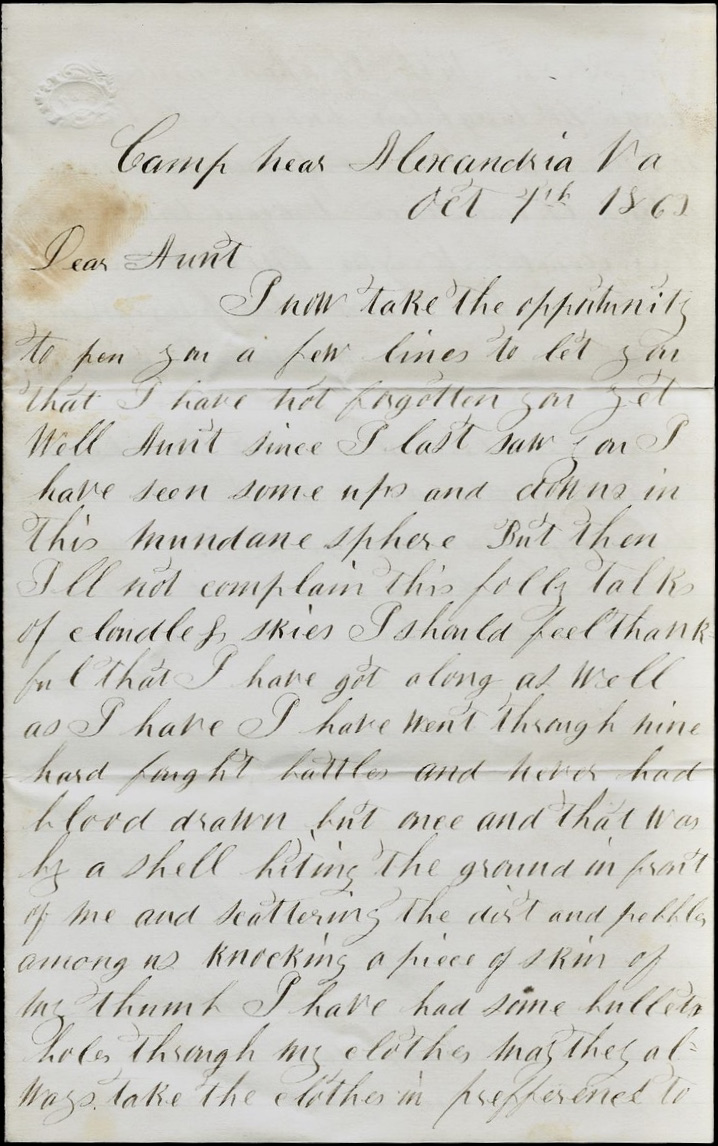 Camp near Alexandria Va
Oct 7th 186
Dear Aunt
I now take the oppotunity
to pen you a few lines to let you
that I have not forgotten you yet
Well Aunt since I last saw you I
have seen some ups and downs in
this mundane sphere But then
Ill not complain this folly talks
of cloudless skies I should feel thank-
ful that I have got along as well
as I have I have went through nine
hard fought battles and never had
blood drawn but once and that was
by a shell hiting the ground in front
of me and scattering the dirt and pebbles
among us knocking a piece of skin of
my thumb I have had some bullets
holes through my clothes may they al=
ways take the clothes in prefference to